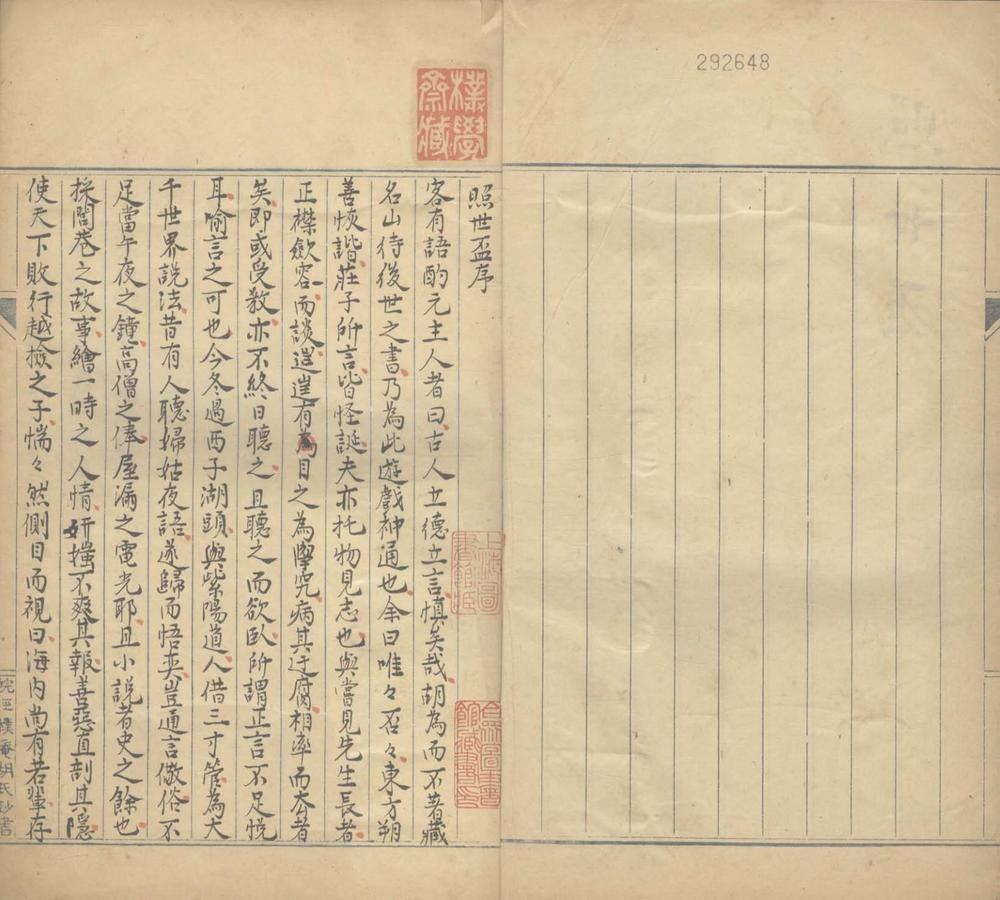 292648
樸學
齋藏
照世盃序
客有語酌元主人者曰古人立德立言慎矣哉胡為而不著藏
名山待後世之書乃為此遊戲神通也余曰唯々否々東方朔
善恢諧莊子所言皆怪誕夫亦托物見志也與嘗見先生長者
正襟歛容而談往往有目之為學究病其迂腐相率而去者
矣即或受教亦不終日聽之且聽之而欲臥所謂正言不足悅
耳喻言之可也今冬過西子湖頭與紫陽道人借三寸管為大
千世界說法昔有人聽婦姑夜語遂歸而悟奕豈通言儆俗不
足當午夜之鐘高僧之俸屋漏之電光耶且小說者史之餘也
採閭巷之故事繪一時之人情妍媸不爽其報善惡直剖其隱
使天下敗行越撿之子惴々然側目而視曰海内尚有若輩存
上海圖
書館藏